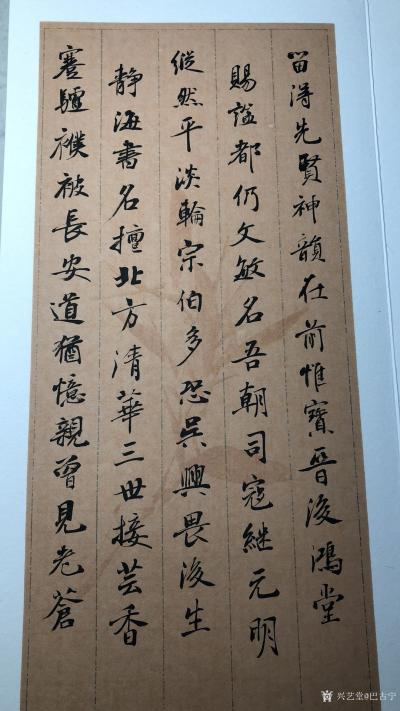 留得先賢神韻在前惟寶晉後鴻堂
賜謚都仍文敏名吾朝司寇繼元明
縱然平淡輸宗伯多恐吳興畏後生
靜海書名擅北方清華三世接芸香
蹇驢襆被長安道猶憶親曾見老蒼
兴艺堂@巴古宁